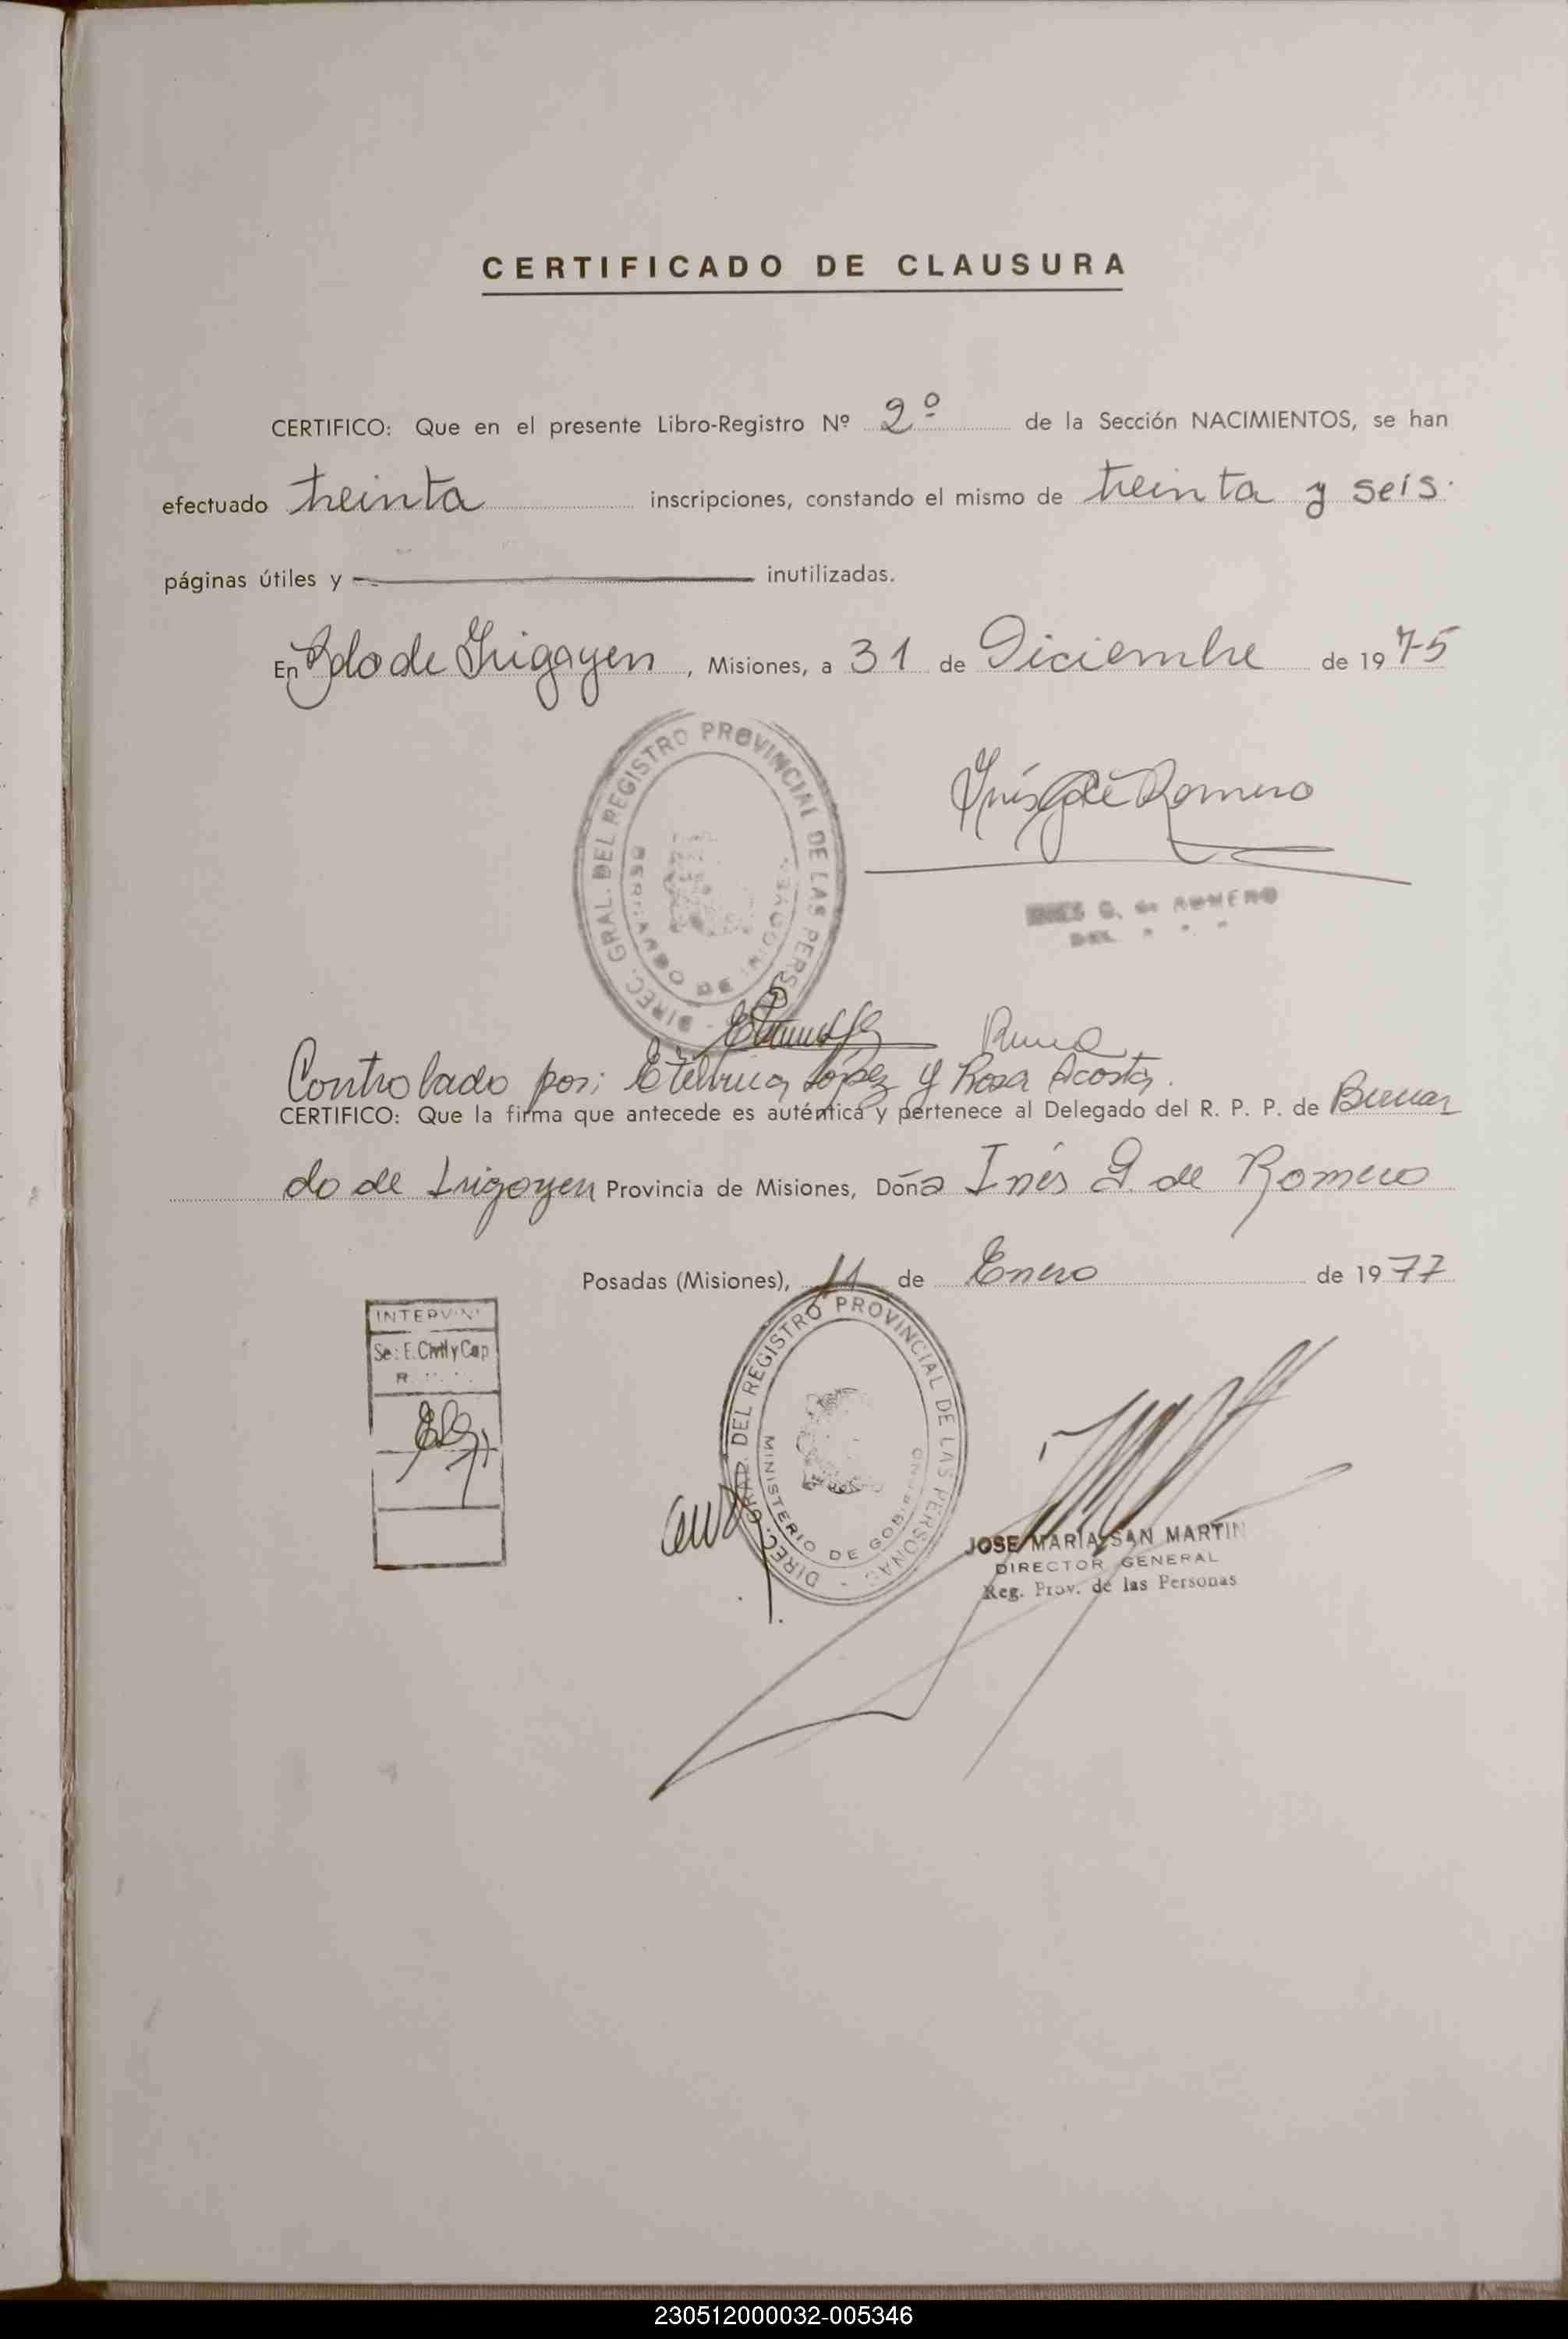 CERTIFICADO DE CLAUSURA
CERTIFICO: Que en el presente Libro-Registro Nº 2º de la Sección NACIMIENTOS, se han
efectuado treinta inscripciones, constando el mismo de treinta y seis.
páginas útiles y inutilizadas.
En Bdo de Irigoyen, Misiones, a 31 de Diciembre de 1975
DIREC. GRAL. DEL REGISTRO PROVINCIAL DE LAS PERS
Inés G de Romero
INES G. de ROMERO
DEL
Controlado por: Etelvina López y Rosa Acosta.
CERTIFICO: Que la firma que antecede es auténtica y pertenece al Delegado del R. P. P. de Bernar
do de Irigoyen Provincia de Misiones, Doña Inés G. de Romero
Posadas (Misiones), 11 de Enero de 1977
INTERVINI
Se: E. Civil y Cap
DIREC. GRAL. DEL REGISTRO PROVINCIAL DE LAS PERSONAS
MINISTERIO DE GOBIERNO
JOSE MARIA SAN MARTIN
DIRECTOR GENERAL
Reg. Prov. de las Personas
230512000032-005346